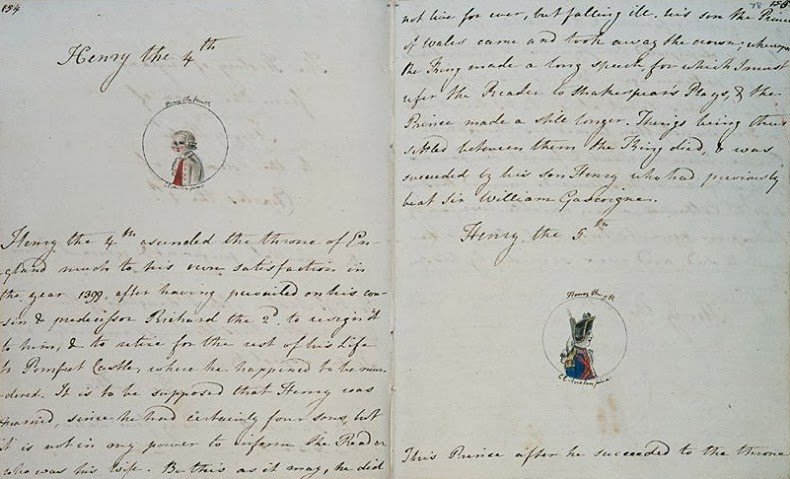 154
Henry the 4th
Henry the fourth
Henry the 4th ascended the throne of En-
gland much to his own satisfaction in
the year 1399, after having prevailed on his cou-
sin & predecessor Richard the 2d, to resign it
to him, & to retire for the rest of his life
to Pomfret Castle, where he happened to be mur-
dered. It is to be supposed that Henry was
married, since he had certainly four sons, but
it is not in my power to inform the Reader
who was his wife. Be this as it may, he did
155
not live for ever, but falling ill, his son the Prince
of Wales came and took away the crown; whereupon
the King made a long speech, for which I must
refer the Reader to Shakespear's Plays, & the
Prince made a still longer. Things being thus
settled between them the King died, & was
succeeded by his son Henry who had previously
beat Sir William Gascoigne.
Henry the 5th
Henry the 5th
C E Austen pinx
This Prince after he succeeded to the throne